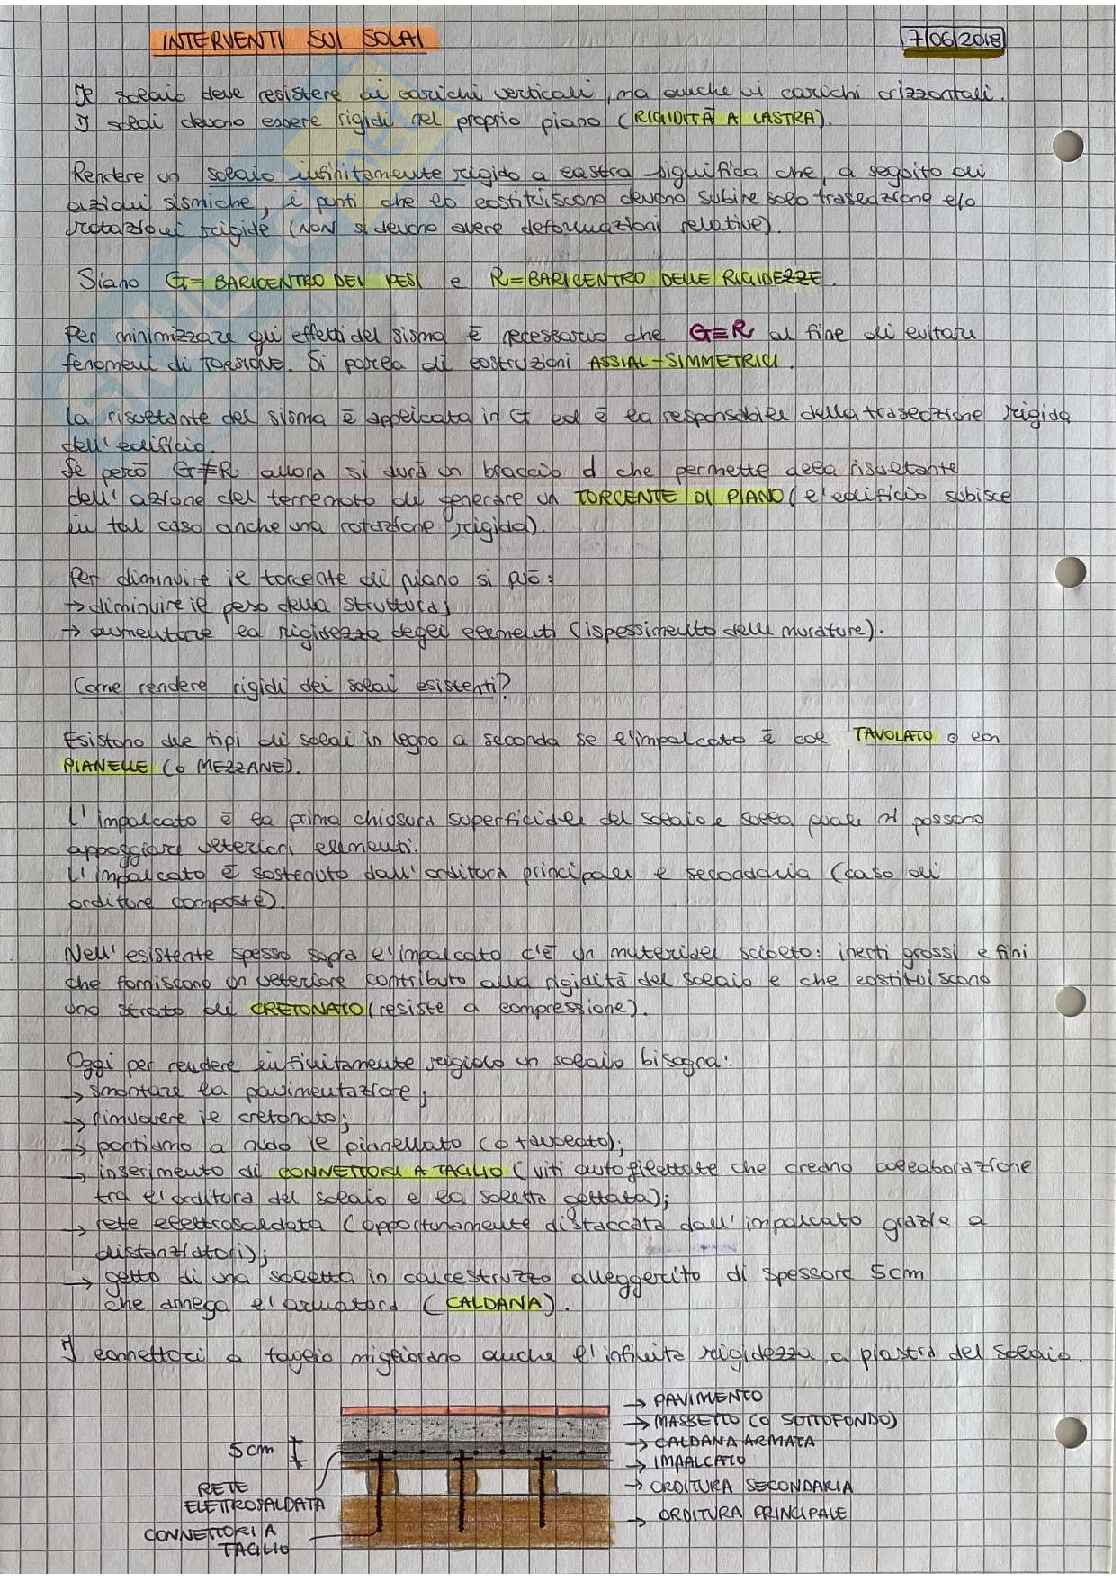 INTERVENTI SUI SOLAI
7/06/2018
Il solaio deve resistere ai carichi verticali, ma anche ai carichi orizzontali.
I solai devono essere rigidi nel proprio piano (RIGIDITÀ A LASTRA).
Rendere un solaio infinitamente rigido a lastra significa che, a seguito di
azioni sismiche, i punti che lo costituiscono devono subire solo traslazione e/o
rotazioni rigide (NON si devono avere deformazioni relative).
Siano G = BARICENTRO DEI PESI e R = BARICENTRO DELLE RIGIDEZZE.
Per minimizzare gli effetti del sisma è necessario che G≡R al fine di evitare
fenomeni di TORSIONE. Si parla di costruzioni ASSIAL-SIMMETRICI.
La risultante del sisma è applicata in G ed è la responsabile della traslazione rigida
dell'edificio.
Se però G≠R allora si avrà un braccio d che permette alla risultante
dell'azione del terremoto di generare un TORCENTE DI PIANO (l'edificio subisce
in tal caso anche una rotazione rigida).
Per diminuire il torcente di piano si può:
→ diminuire il peso della struttura;
→ aumentare la rigidezza degli elementi (ispessimento delle murature).
Come rendere rigidi dei solai esistenti?
Esistono due tipi di solai in legno a seconda se l'impalcato è col TAVOLATO o con
PIANELLE (o MEZZANE).
L'impalcato è la prima chiusura superficiale del solaio e sulla quale si possono
appoggiare ulteriori elementi.
L'impalcato è sostenuto dall'orditura principale e secondaria (caso di
orditure composte).
Nell'esistente spesso sopra l'impalcato c'è un materiale sciolto: inerti grossi e fini
che forniscono un ulteriore contributo alla rigidità del solaio e che costituiscono
uno strato di CRETONATO (resiste a compressione).
Oggi per rendere infinitamente rigido un solaio bisogna:
→ smontare la pavimentazione;
→ rimuovere il cretonato;
→ portiamo a nudo il pianellato (o tavolato);
→ inserimento di CONNETTORI A TAGLIO (viti autofilettate che creano collaborazione
tra l'orditura del solaio e la soletta gettata);
→ rete elettrosaldata (opportunamente distaccata dall'impalcato grazie a
distanziatori);
→ getto di una soletta in calcestruzzo alleggerito di spessore 5cm
che annega l'armatura (CALDANA).
I connettori a taglio migliorano anche l'infinita rigidezza a piastra del solaio.
→ PAVIMENTO
→ MASSETTO (O SOTTOFONDO)
5cm
→ CALDANA ARMATA
→ IMPALCATO
RETE
ELETTROSALDATA
→ ORDITURA SECONDARIA
→ ORDITURA PRINCIPALE
CONNETTORI A
TAGLIO